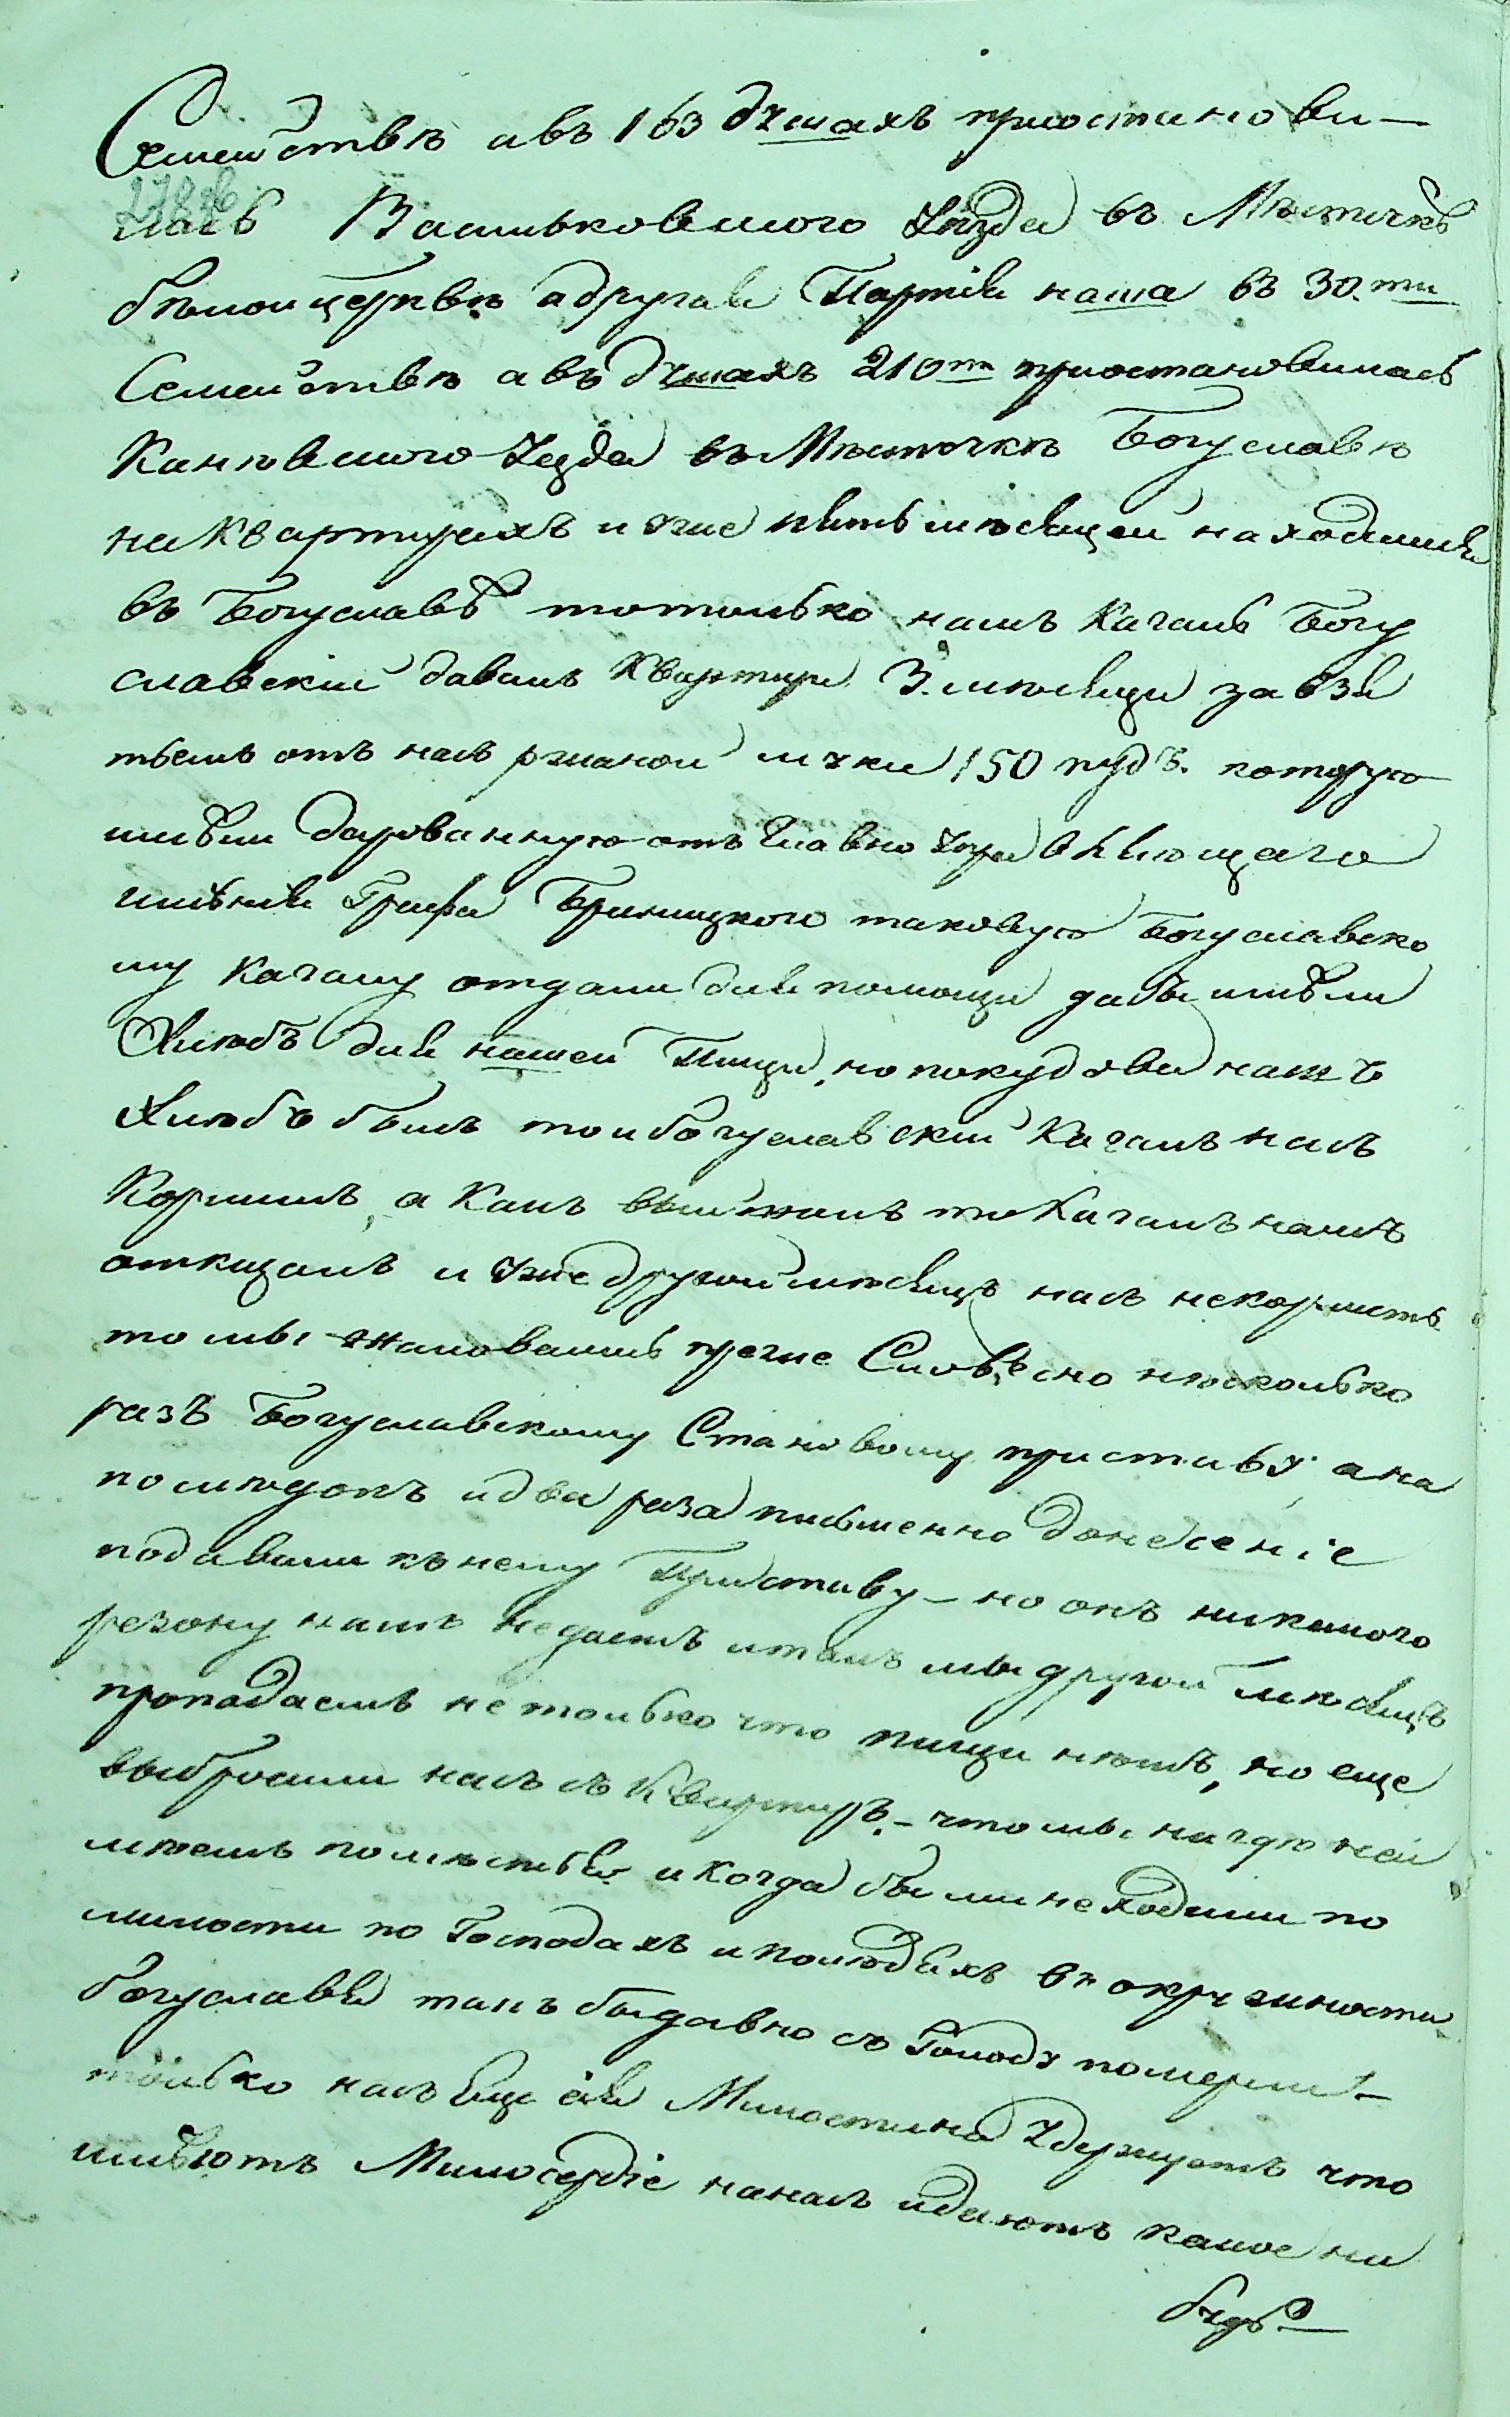 Семействѣ авъ 163 душахъ приостанови-
278 об
лась Васильковского Уѣзда въ Мѣстечкѣ
бѣлои церквѣ адругая Партія наша въ 30.ти
Семействѣ авъ душахъ 210ти приостановилась
Каневского Уезда въ Мѣсточкѣ Богуславѣ
на квартирахъ и уже пять мѣсяцеи находимся
въ Богуславѣ то только намъ Кагалъ Богу
славскій давалъ Квартири 3. мѣсяци завзя
тьемъ отъ насъ ржаной муки 150 пудъ. которую
имѣли дарованную отъ Главно Управляющаго
имѣнія Графа Браницкого таковую Богуславско
му Кагалу отдали для помощи дабы имѣли
Хлѣбъ для нашей Пищи, но покудова нашъ
хлѣбъ былъ то и богуславскии Кагалъ насъ
Кормилъ, а Какъ вышолъ то Кагалъ намъ
откцалъ и уже другой мѣсяцъ насъ некормитъ
то мы жаловались преже Словесно нѣсколько
разъ Богуславскому Становому приставу, а на
послѣдокъ и два раза письменно донесеніе
подавали къ нему Приставу - но онъ никакого
резону намъ недаетъ итакъ мы другой Мѣсяцъ
пропадаемъ не только что пищи нѣтъ, но еще
выбросили насъ съ Квартиръ. - что мы нигдѣ неи
мѣемъ помѣстья и когда бы мы не ходили по
милости по Господахъ и полюдяхъ въ окружности
богуславя такъ бы давно съ Голоду померли -
только насъ Еще ея Милостина Удержуетъ что
имѣютъ Милосердіе нанасъ идаютъ какое ни
будь -